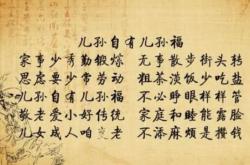 儿孙自有儿孙福
家事少勤锻炼 无事散步街头转
思虑少常劳动 粗茶淡饭少吃盐
儿孙自有儿孙福 不必睁眼样样管
敬老爱小好传统 家庭和睦能露脸
儿女成人咱老 不添麻烦是攒钱